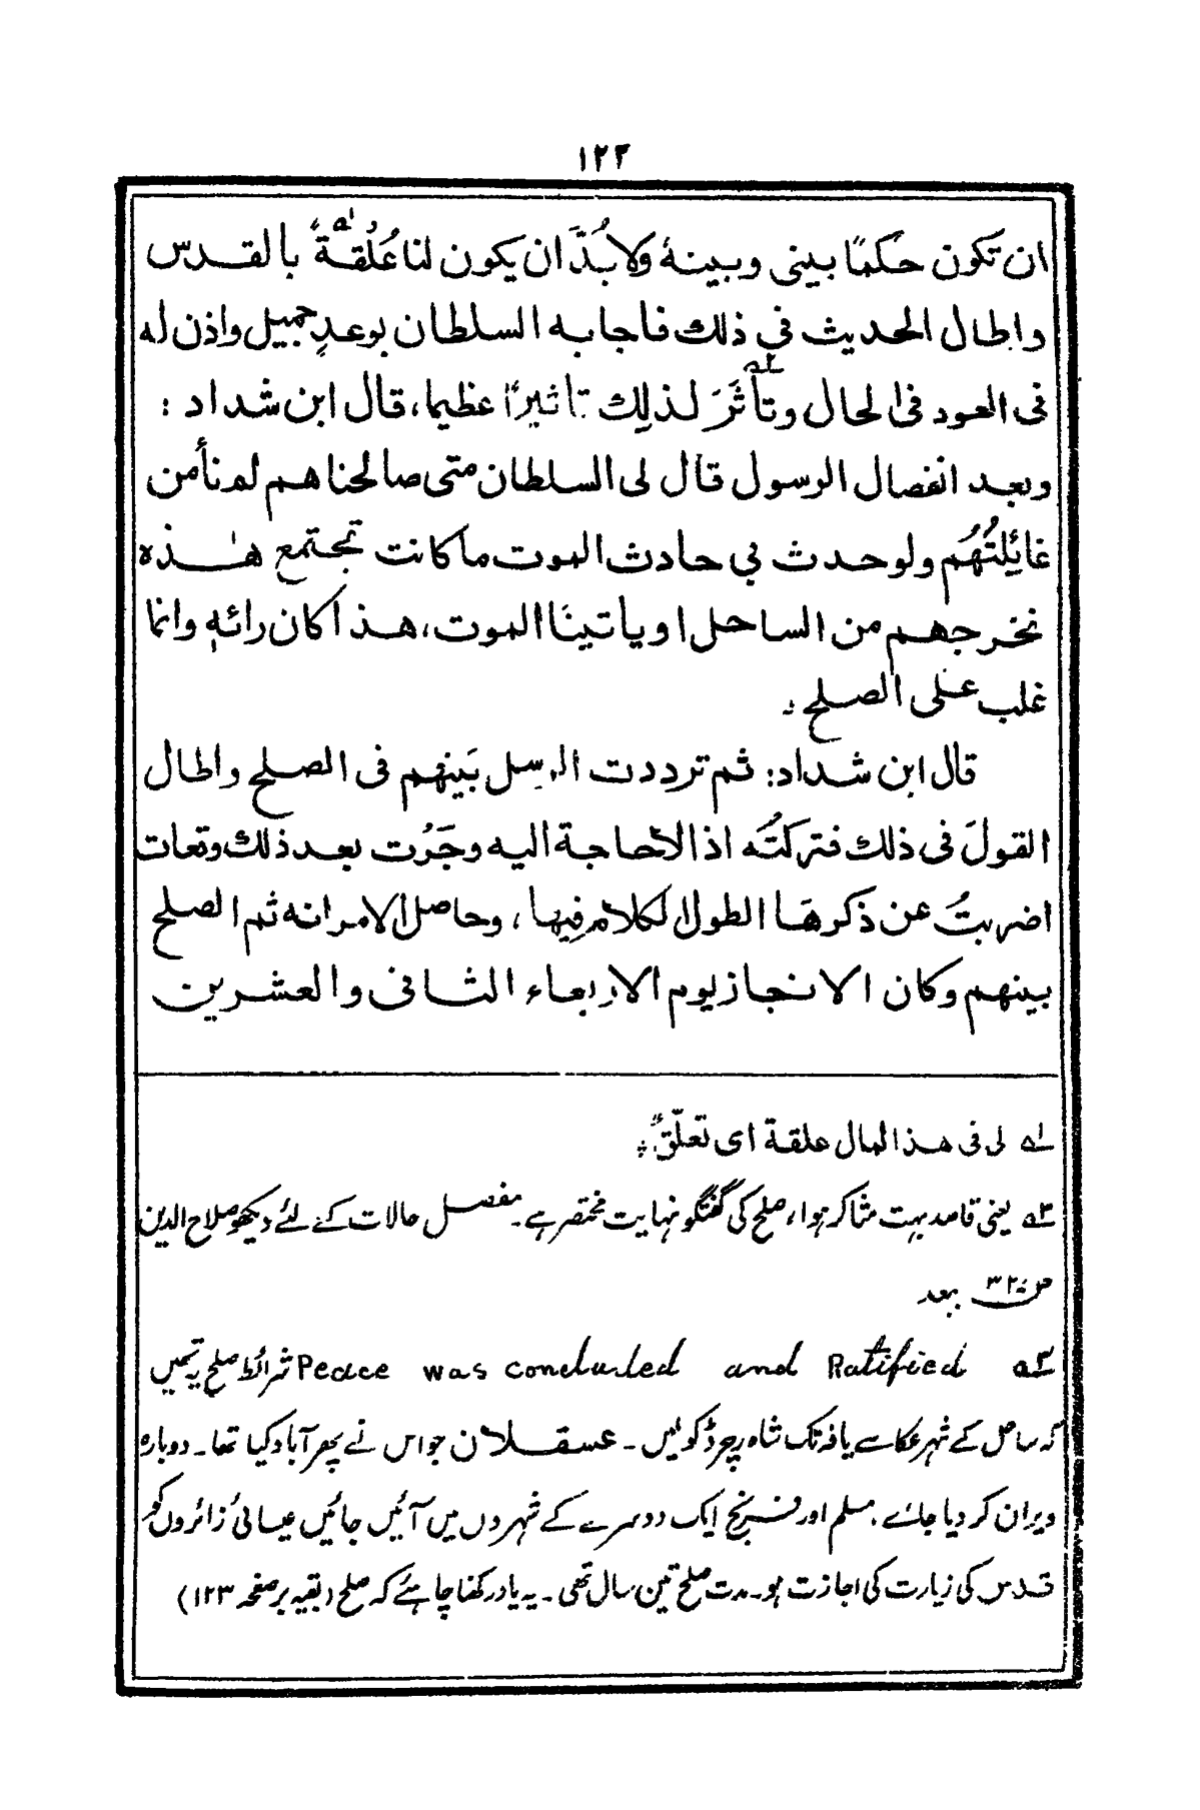 ١٢٢
ان تكون حَكَمًا بيني وبينهُ ولابُدَّ ان يكون لنا عُلْقةٌ ؎١ بالقدس
واطال الحديث في ذلك فاجابه السلطان بوعدٍ جميل واذن له
فى العود فى الحال وتأثَّرَ ؎٢ لذلك تاثيرًا عظيما، قال ابن شداد :
وبعد انفصال الرسول قال لى السلطان متى صالحناهم لم نأمن
غائلتُهُم ولو حدث بي حادث الموت ما كانت تجتمع هٰذه
نخرجهم من الساحل او يأتينَا الموت، هذا كان رائه وانما
غلب على الصلح ؞
قال ابن شداد: ثم ترددت الرسل بَينهم فى الصلح واطال
القولَ فى ذلك فتركتُه اذ الاحاجة اليه وجَرَت بعد ذلك وقعات
اضربتُ عن ذكرهَا الطول الكلام فيها، وحاصل الامر انه ثم الصلح
بينهم وكان الانجاز يوم الاربعاء الثانى والعشرين
؎١ لى فى هذا المال علقة اى تعلّقٌ ؞
؎٢ یعنی قاصد بہت متاکر ہوا، صلح کی گفتگو نہایت مختصر ہے۔ مفصل حالات کے لئے دیکھو صلاح الدین
ص ٣٢٠ ببعد
؎٣ Peace was concluded and Ratified شرائط صلح یہ تھیں
کہ ساحل کے شہر عکا سے یافہ تک شاہ رچرڈ کو لیں۔ عسقلان جو اس نے پھر آباد کیا تھا۔ دوبارہ
ویران کر دیا جائے۔ مسلم اور فرنچ ایک دوسرے کے شہروں میں آئیں جائیں عیسائی زائروں کو
قدس کی زیارت کی اجازت ہو۔ مدت صلح تین سال تھی۔ یہ یاد رکھنا چاہئے کہ صلح (بقیہ بر صفحہ ١٢٣)